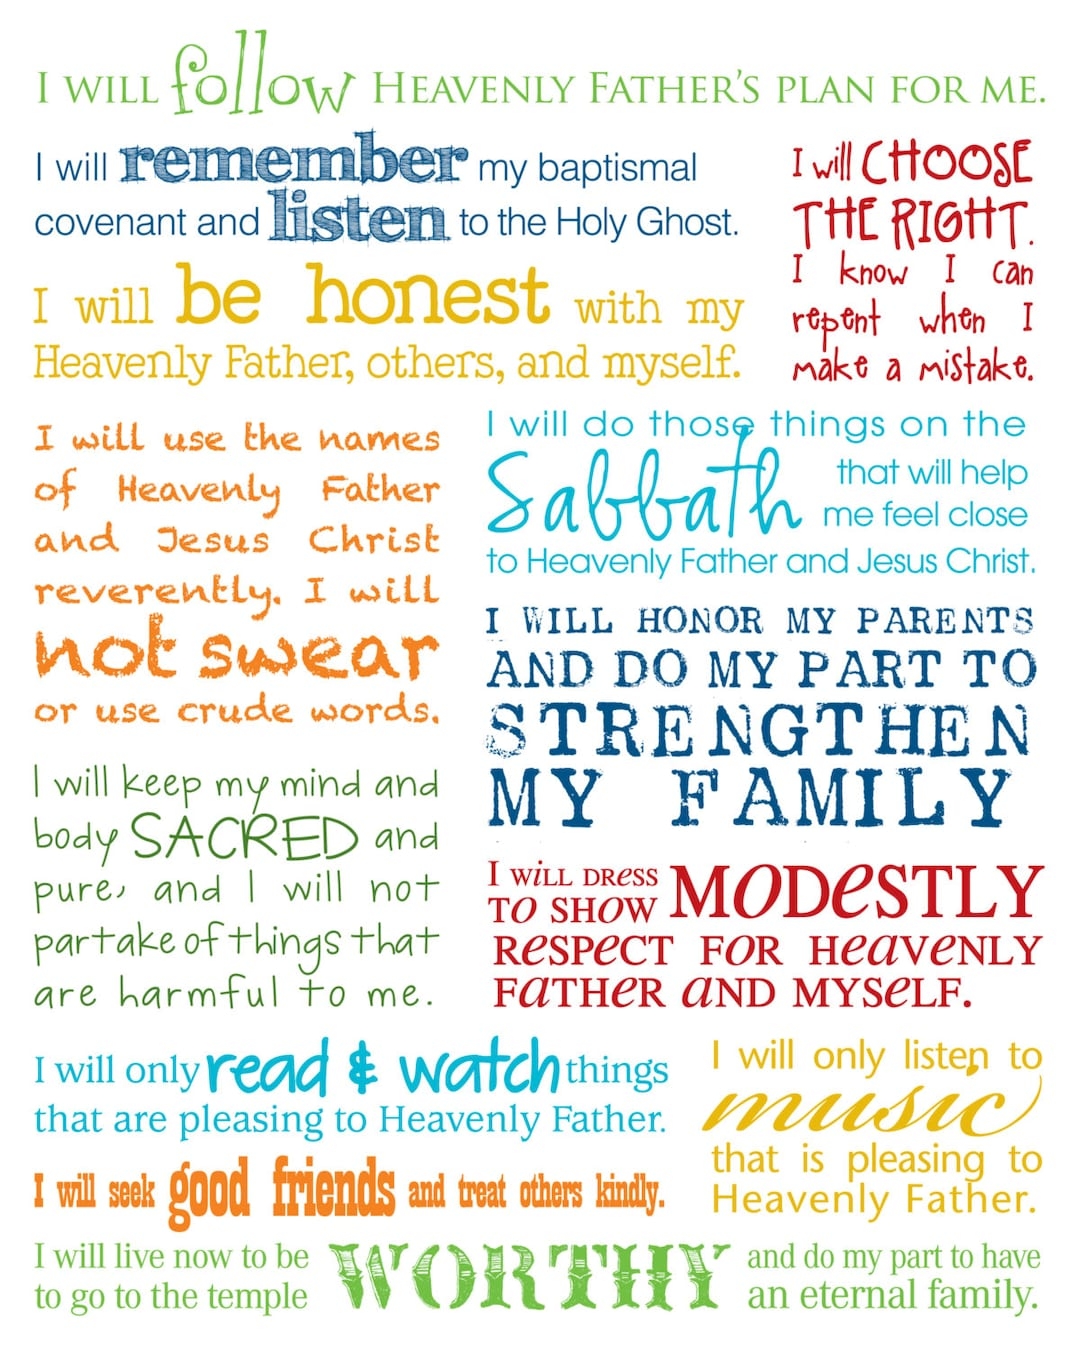 I WILL follow HEAVENLY FATHER'S PLAN FOR ME.
I will remember my baptismal
covenant and listen to the Holy Ghost.
I will CHOOSE
THE RIGHT.
I know I can
repent when I
make a mistake.
I will be honest with my
Heavenly Father, others, and myself.
I will use the names
of Heavenly Father
and Jesus Christ
reverently. I will
not swear
or use crude words.
I will do those things on the
Sabbath that will help
me feel close
to Heavenly Father and Jesus Christ.
I WILL HONOR MY PARENTS
AND DO MY PART TO
STRENGTHEN
MY FAMILY
I will keep my mind and
body SACRED and
pure, and I will not
partake of things that
are harmful to me.
I WiLL DReSS MODeSTLY
TO SHOW
ReSPeCT FOR HeaVeNLY
FaTHeR aND MYSeLF.
I will only read & watch things
that are pleasing to Heavenly Father.
I will only listen to
music
that is pleasing to
Heavenly Father.
I will seek good friends and treat others kindly.
I will live now to be WORTHY and do my part to have
to go to the temple an eternal family.